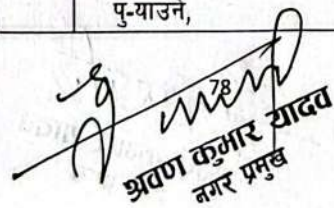 पु-याउने,
78
श्रवण कुमार यादव
नगर प्रमुख